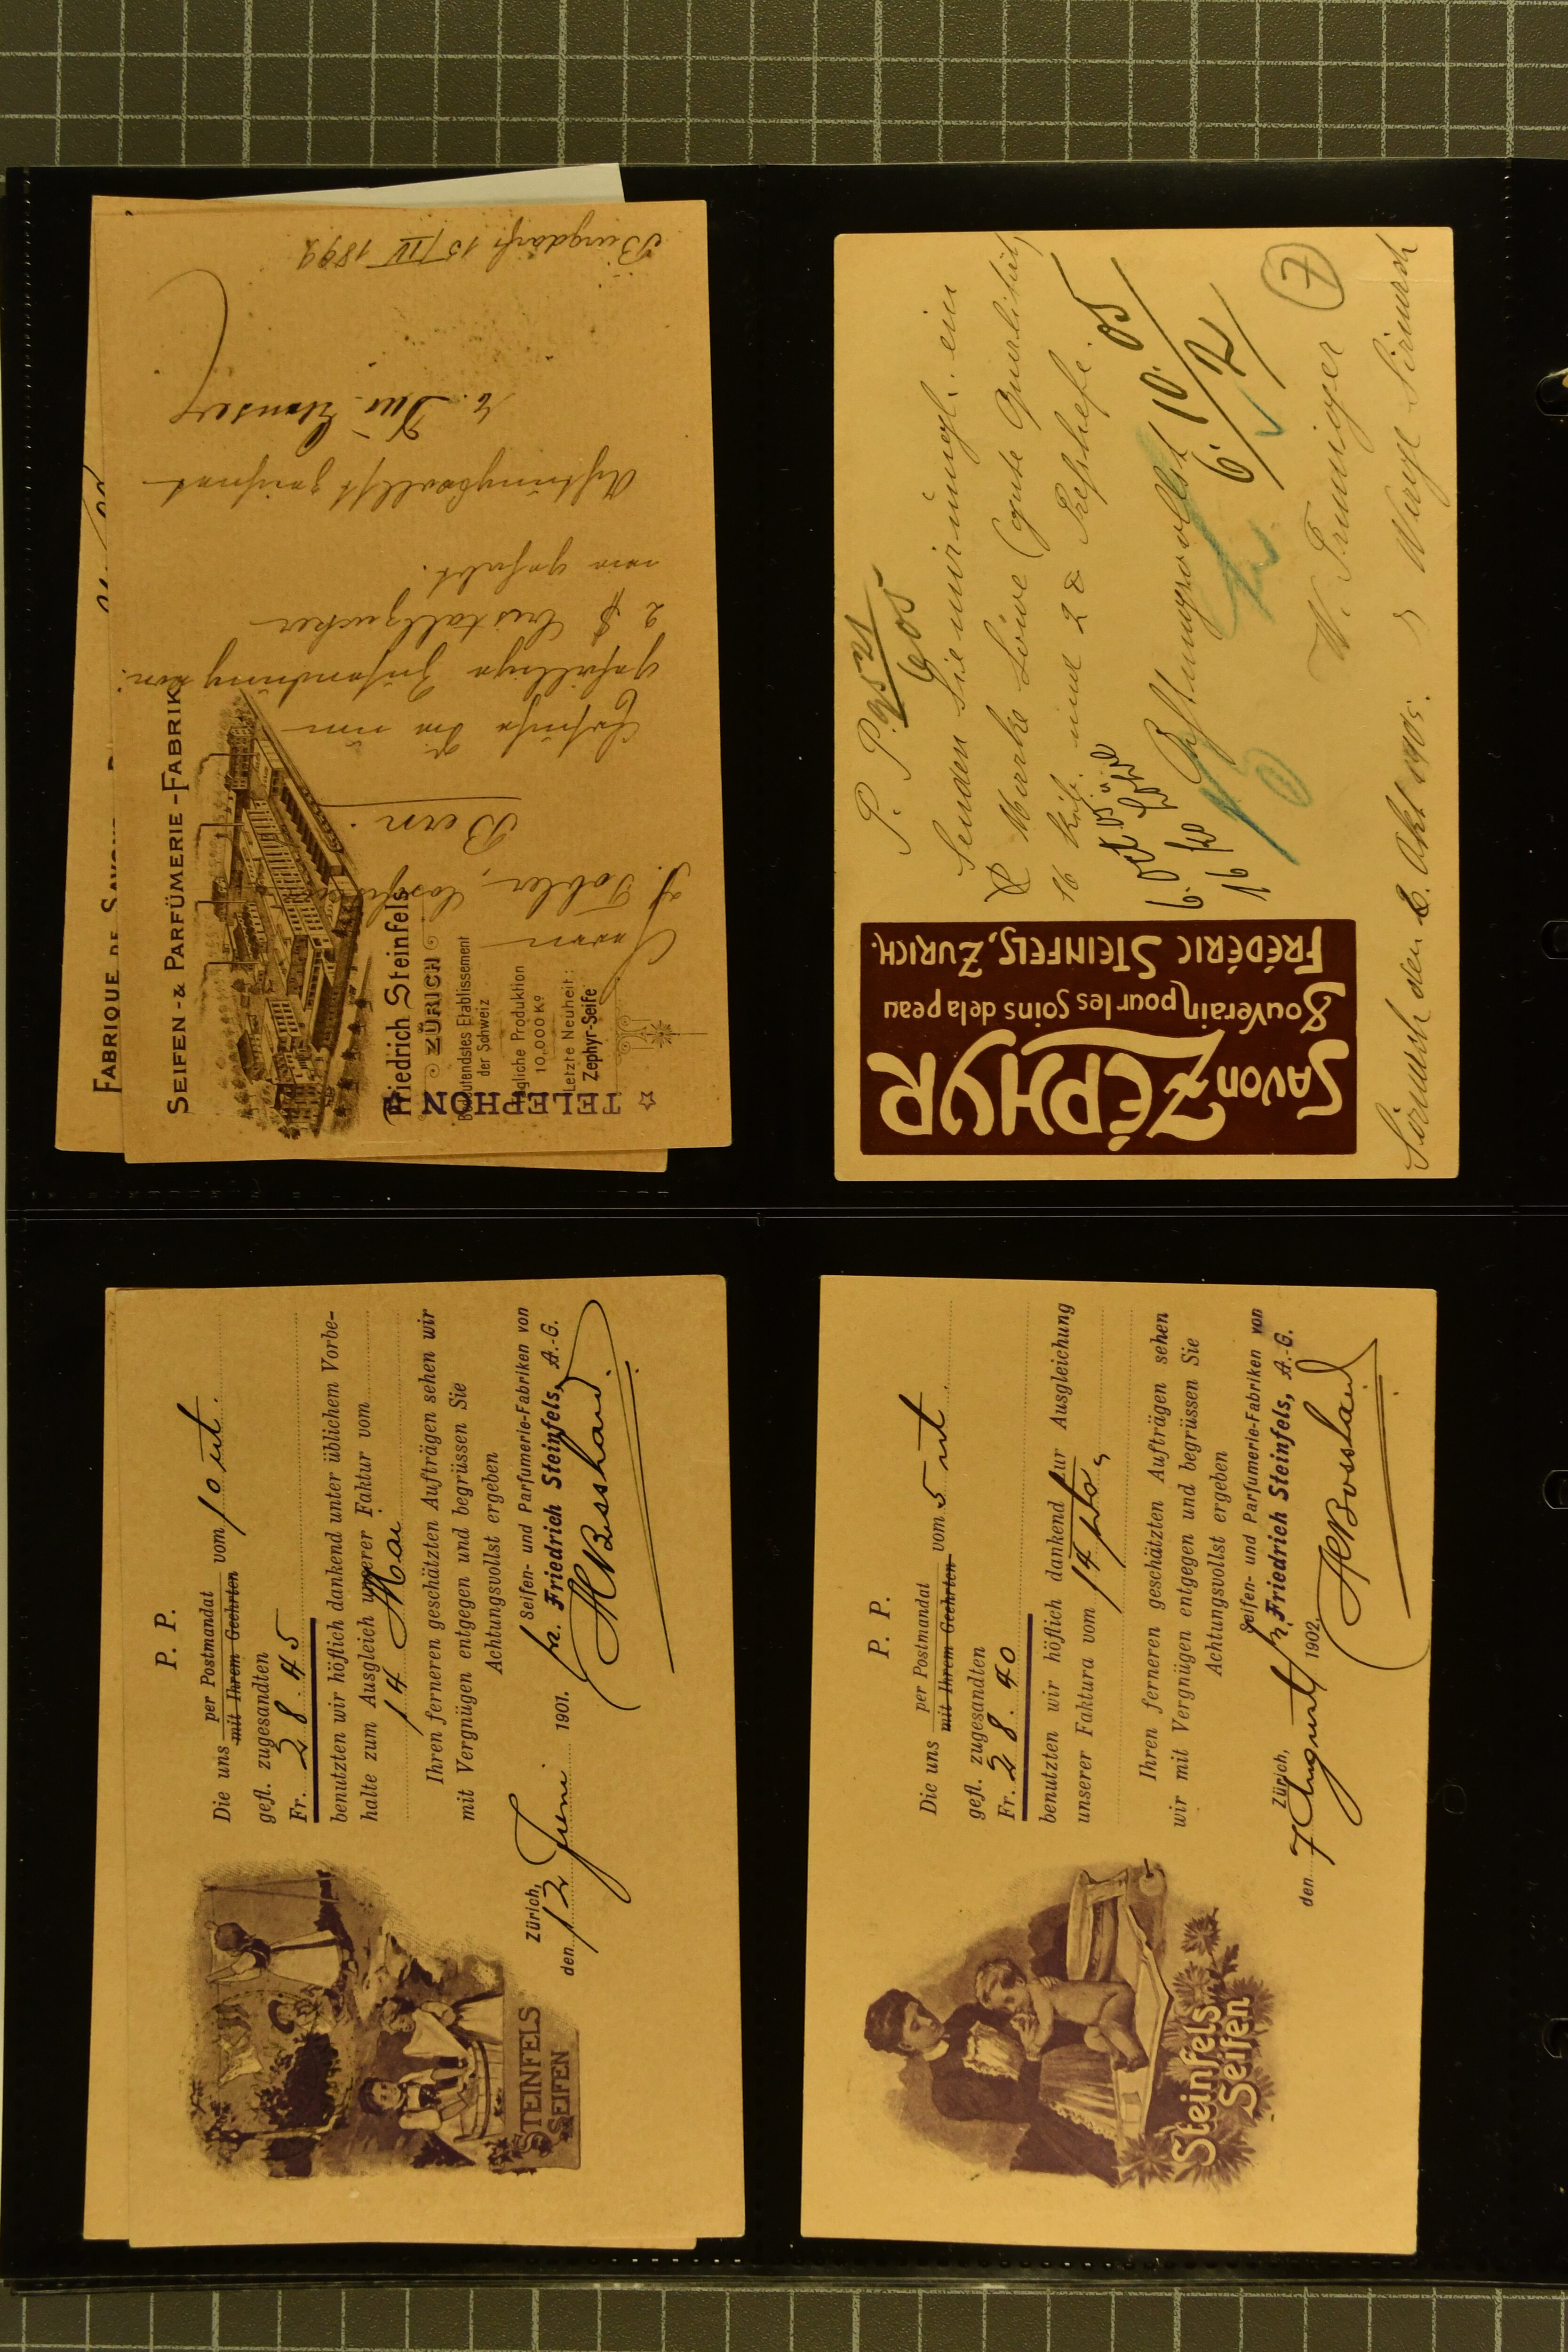 FABRIQUE DE SAVON
SEIFEN- & PARFÜMERIE-FABRIK
Friedrich Steinfels
ZÜRICH
Bedeutendstes Etablissement
der Schweiz
Tägliche Produktion
10,000 Ko
Letzte Neuheit:
Zephyr-Seife
TELEPHON
Burgdorf 15/IV 1899
Herrn
J. Tobler,
Bern.
Ersuche Sie um
gefällige Zusendung von:
2 Cristallzucker
Achtungsvollst zeichnet
SAVON
ZÉPHYR
Souverain pour les soins de la peau
FRÉDÉRIC STEINFELS, ZURICH.
P. P.
Senden Sie mir umgehl. ein
Marke Löwe (gute Qualität)
16 und 2 Presshefe
Achtungsvollst
6. 10. 05
W. Trüniger
7
den 6. Okt 1905.
P. P.
Die uns per Postmandat vom 10 ct.
mit Ihrem Geehrten
gefl. zugesandten
Fr. 28.45
benutzten wir höflich dankend unter üblichem Vorbe-
halte zum Ausgleich unserer Faktur vom
14 Mai
Ihren ferneren geschätzten Aufträgen sehen wir
mit Vergnügen entgegen und begrüssen Sie
Achtungsvollst ergeben
Seifen- und Parfumerie-Fabriken von
pr. Friedrich Steinfels, A.-G.
HBosshard
Zürich,
den 12 Juni 1901.
STEINFELS
SEIFEN
P. P.
Die uns per Postmandat vom 5 ct
mit Ihrem Geehrten
gefl. zugesandten
Fr. 28.40
benutzten wir höflich dankend zur Ausgleichung
unserer Faktura vom 14
Ihren ferneren geschätzten Aufträgen sehen
wir mit Vergnügen entgegen und begrüssen Sie
Achtungsvollst ergeben
Seifen- und Parfumerie-Fabriken von
pr. Friedrich Steinfels, A.-G.
HBosshard
Zürich,
den 7 August 1902.
Steinfels
Seifen